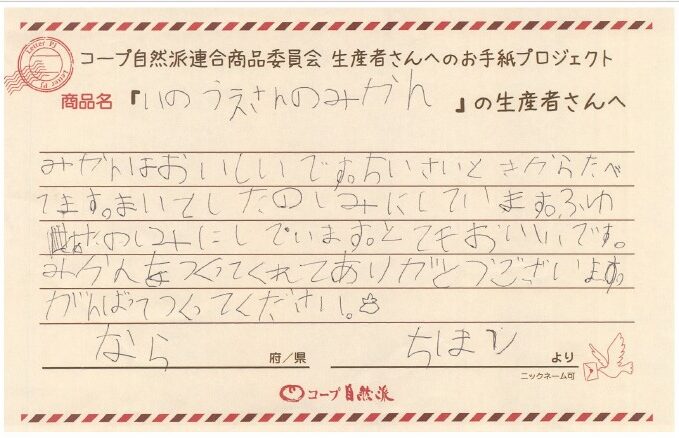 コープ自然派連合商品委員会 生産者さんへのお手紙プロジェクト
商品名『いのうえさんのみかん』の生産者さんへ
みかんはおいしいです。ちいさいときからたべ
てます。まいとしたのしみにしています。ふゆ
たのしみにしています。とてもおいしいです。
みかんをつくってくれてありがとうございます。
がんばってつくってください。
なら 府/県 ちほり より
ニックネーム可
コープ自然派